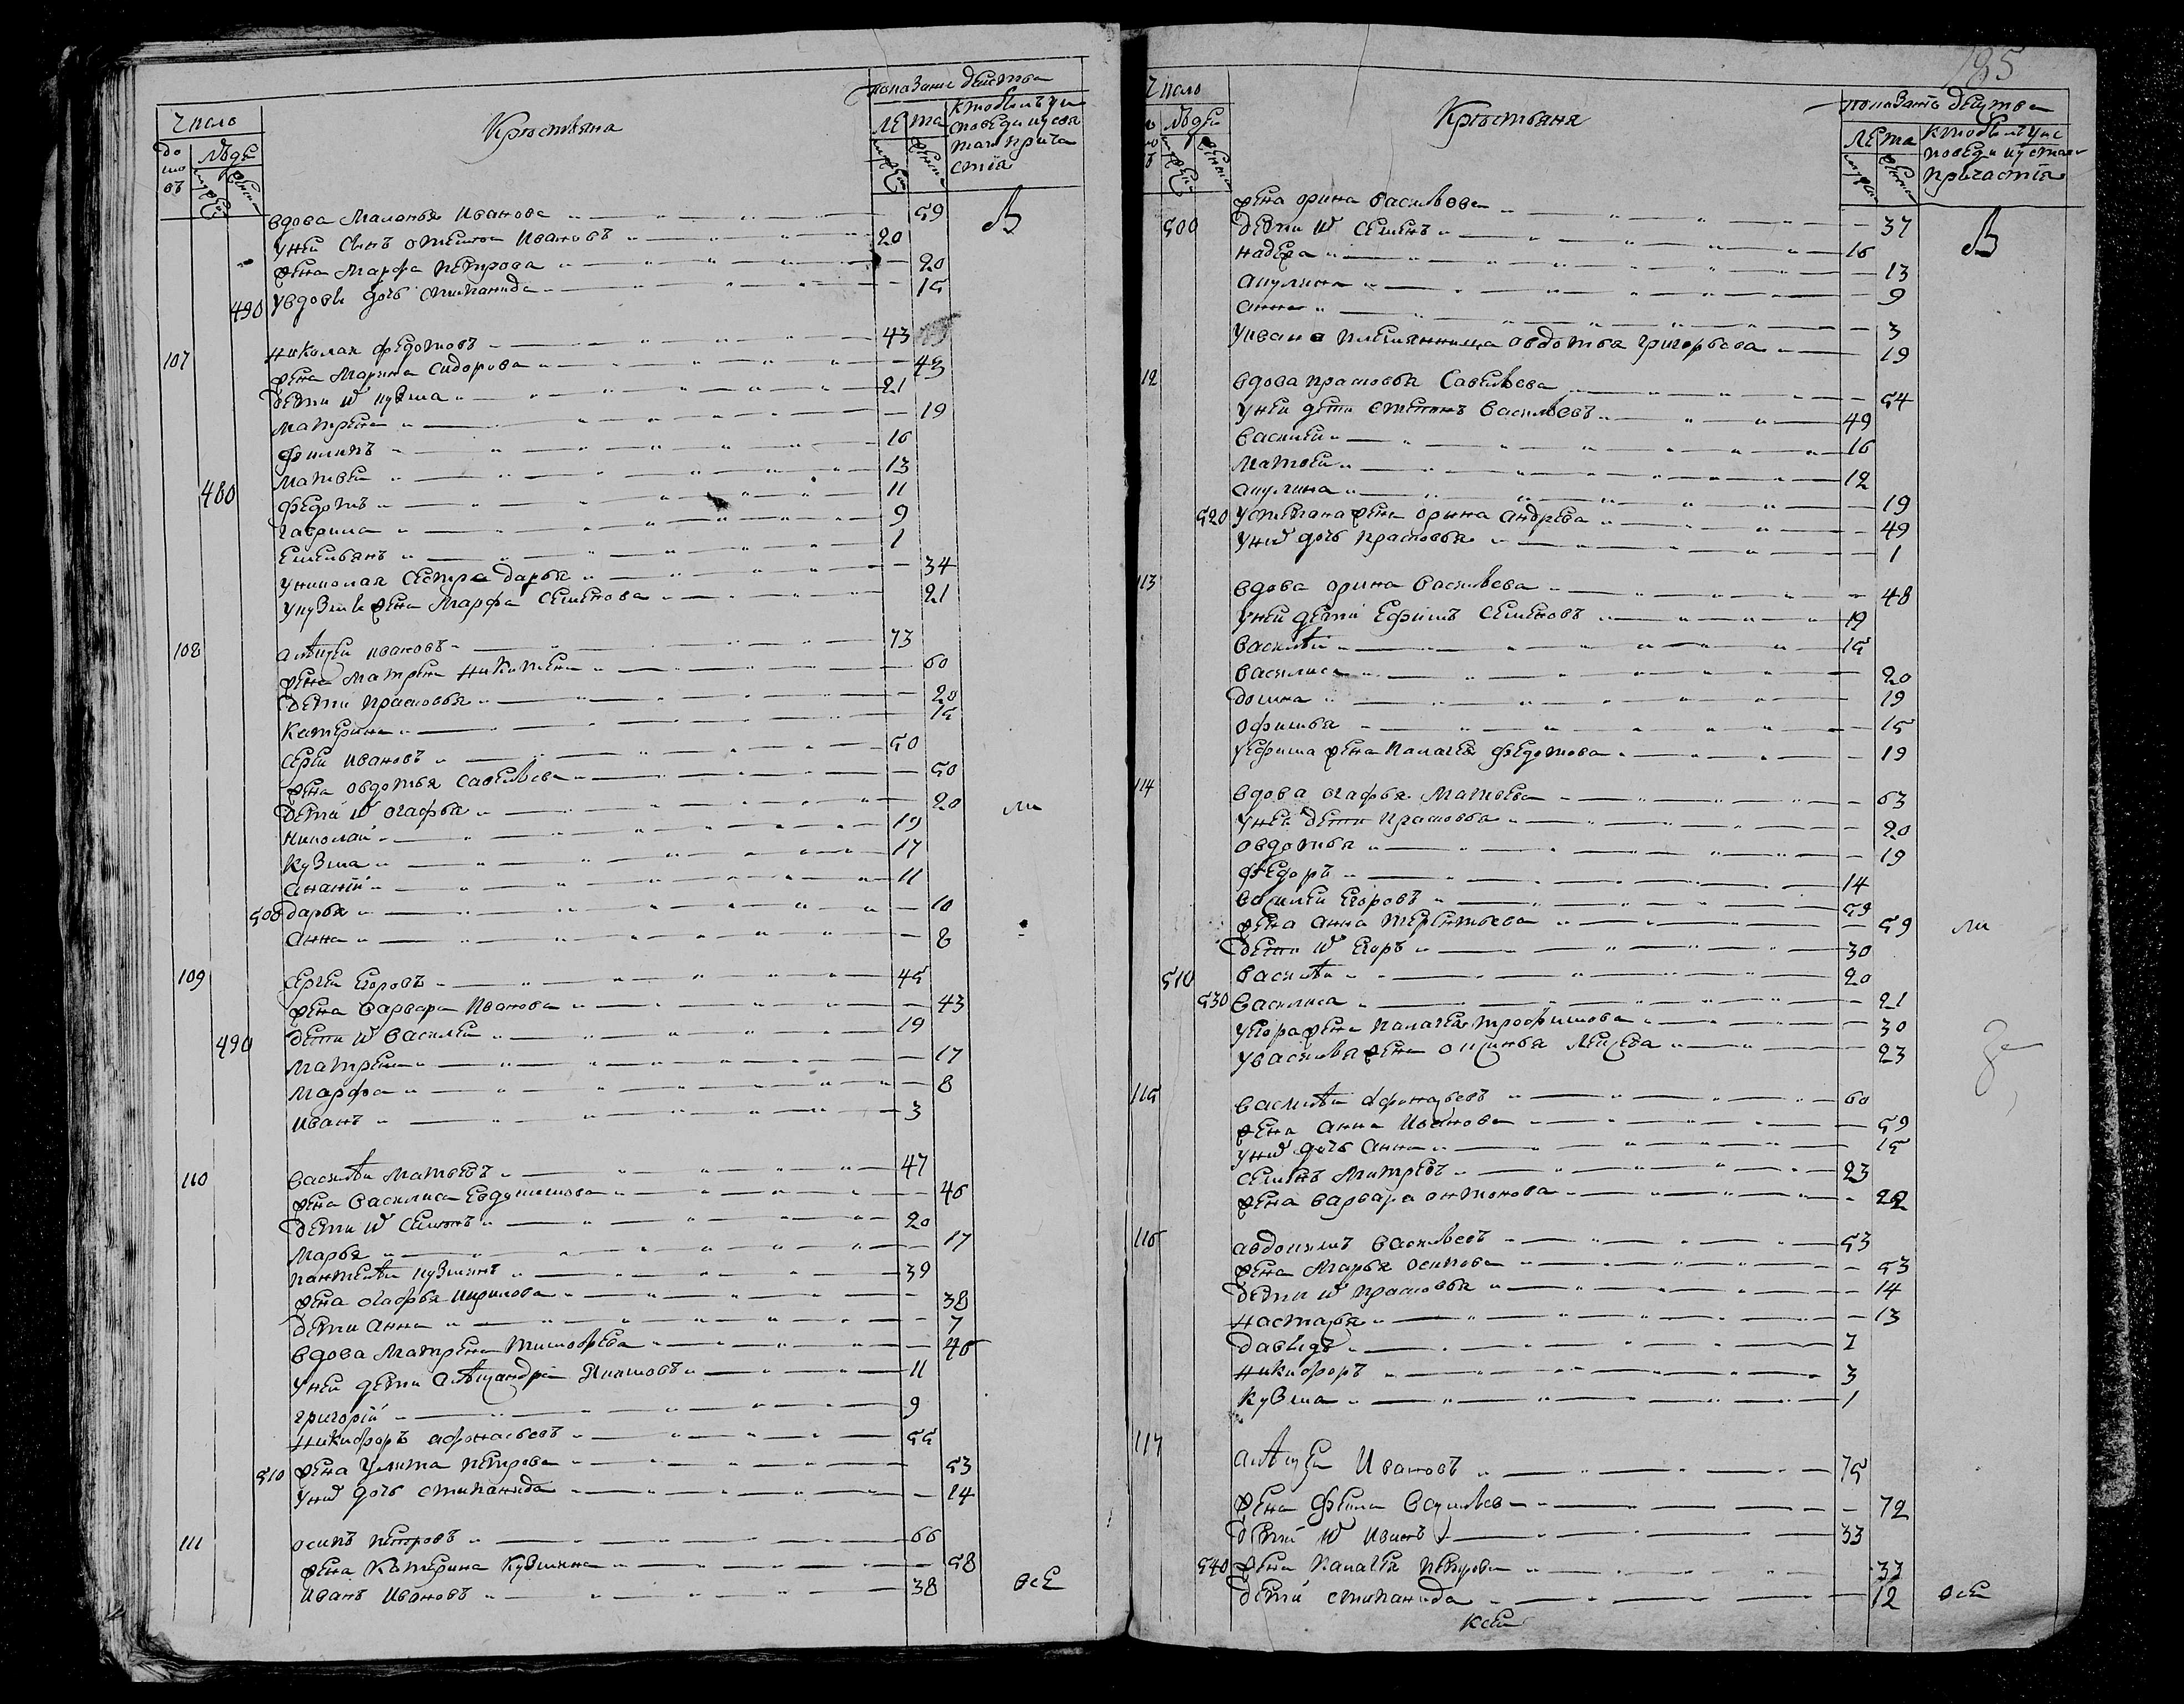 Число
Крестьяна
показание действа
до
мо
въ
людей
мужеска
женска
лета
мужеска
женска
кто былъ у ис
поведи и у свя
таго прича
стия
вдова Маланья Иванова 59
у ней сынъ Иванов 20
жена Марфа Петрова 20
490 у вдовы дочь Степанида 15
107 Николай Федотовъ 43
жена Марина Сидорова 43
дети их Кузма 21
Матрена 19
Филипъ 16
Матвей 13
480 Федотъ 11
Гаврила 9
Емельянъ 1
у Николая сестра Дарья 34
у Кузмы жена Марфа Семенова 21
108 Алексей Ивановъ 73
жена Матрена Никитена 60
дети Прасковья 20
Катерина 15
Сергей Ивановъ 50
жена Овдотья Савельева 50
дети их Огафья 20 ли
Николай 19
Кузма 17
Ананий 11
500 Дарья 10
Анна 8
109 Сергей Егоровъ 45
жена Варвара Иванова 43
490 дети их Василей 19
Матрена 17
Марфа 8
Иванъ 3
110 Василей Матвеевъ 47
жена Василиса Евдокимова 46
дети их Семионъ 20
Марья 17
Пантелей Кузминъ 39
жена Огафья Кирилова 38
дети Анна 7
вдова Матрена Тимофеева 46
у ней дети Александръ Якимовъ 11
Григорий 9
Никифоръ Афонасьевъ 55
510 жена Улита Петрова 53
у них дочь Степанида 14
111 Осипъ Петровъ 66
жена Катерина Кузмина 58
Иванъ Ивановъ 38 все
185
Число
Крестьяна
показание действа
людей
мужеска
женска
лета
мужеска
женска
кто былъ у ис
поведи и у свя
причастия
жена Орина Васильева 37
500 дети их Семенъ 16
Надежа 13
Акулина 9
Анна 3
у Ивана племянница Овдотья Григорьева 19
12 вдова Прасковья Савельева 54
у ней дети Степанъ Васильевъ 49
Василей 16
Матвей 12
Акулина 19
520 у Степана жена Орина Андреева 49
у них дочь Прасковья 1
113 вдова Орина Васильева 48
у ней дети Ефимъ Семеновъ 19
Василей 15
Василиса 20
Домна 19
Офимья 15
у Ефима жена Палагея Федотова 19
114 вдова Огафья Матвеева 63
у ней дети Прасковья 20
Овдотья 19
Федоръ 14
Василей Егоровъ 59
жена Анна Терентьева 59 ли
дети их Егоръ 30
510 Василей 20
530 Василиса 21
у Егора жена Палагея Трофимова 30
у Василья жена 23
115 Василей Афонасьевъ 60
жена Анна Иванова 59
у них дочь Анна 15
Семенъ Митревъ 23
жена Варвара Онтонова 22
116 Авдокимъ Васильевъ 53
жена Марья Осипова 53
дети их Прасковья 14
Настасья 13
Давыдъ 7
Никифоръ 3
Кузма 1
117 Алексей Ивановъ 75
жена Фекла Васильева 72
дети их Иванъ 33
540 жена Палагея Петрова 33
дети Степанида 12 все